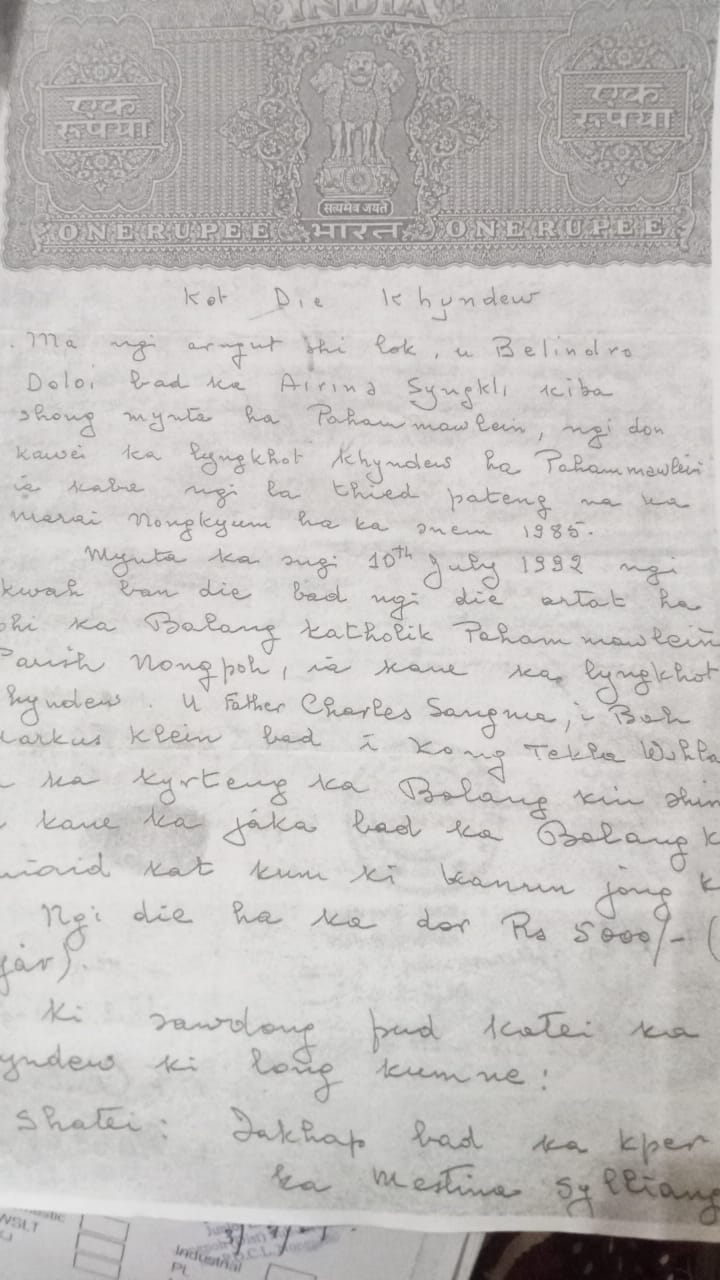 INDIA
एक रूपया
एक रूपया
सत्यमेव जयते
ONE RUPEE भारत ONE RUPEE
Kot Die Khyndew
Ma ngi arngut shi lok, u Belindro
Doloi bad ka Airina Syngkli kiba
shong mynta ha Pahammawlein, ngi don
kawei ka lyngkhot Khyndew ha Pahammawlein
ia kaba ngi la thied pateng na ka
marai Nongkyum ha ka snem 1985.
Mynta ka sngi 10th July 1992 ngi
kwah ban die bad ngi die artat ha
ka Balang Katholik Pahammawlein
Parish Nongpoh, ia kane ka lyngkhot
hyndew. U Father Charles Sangma, i Bah
arkus Klein bad i Kong Tekla Wahla
ka kyrteng ka Balang kin shim
kane ka jaka bad ka Balang k
iaid kat kum ki kanun jong k
Ngi die ha ka dor Rs 5000/- (
jar).
Ki sawdong pud katei ka
yndew ki long kumne:
Shatei: Jakhap bad ka kper
ka Mestina Sylliang
Industrial
PL